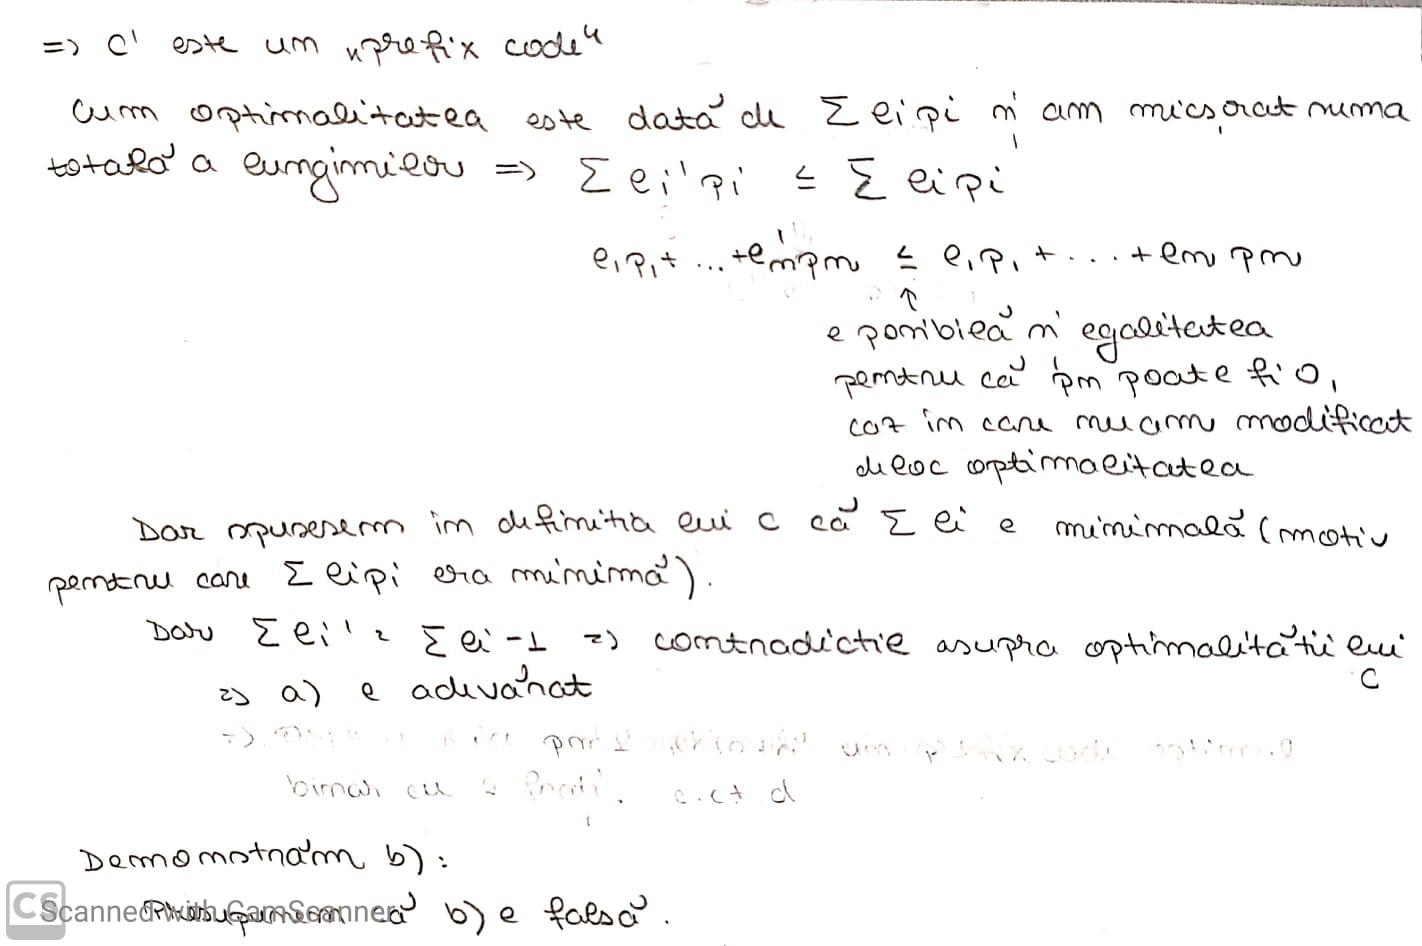 => C' este un „prefix code"
Cum optimalitatea este dată de Σ li pi și am micșorat suma
totală a lungimilor => Σ li' pi ≤ Σ li pi
l1p1 + ... + ln'pn ≤ l1p1 + ... + ln pn
↑
e posibilă și egalitatea
pentru că pn poate fi 0,
caz în care nu am modificat
deloc optimalitatea
Dar spusesem în definiția lui C că Σ li e minimală (motiv
pentru care Σ li pi era minimă).
Dar Σ li' = Σ li - 1 => contradicție asupra optimalității lui
C
=> a) e adevărat
binar cu 2 frați. c.c.t.d
Demonstrăm b):
Presupunem că b) e falsă.
CS
Scanned with CamScanner